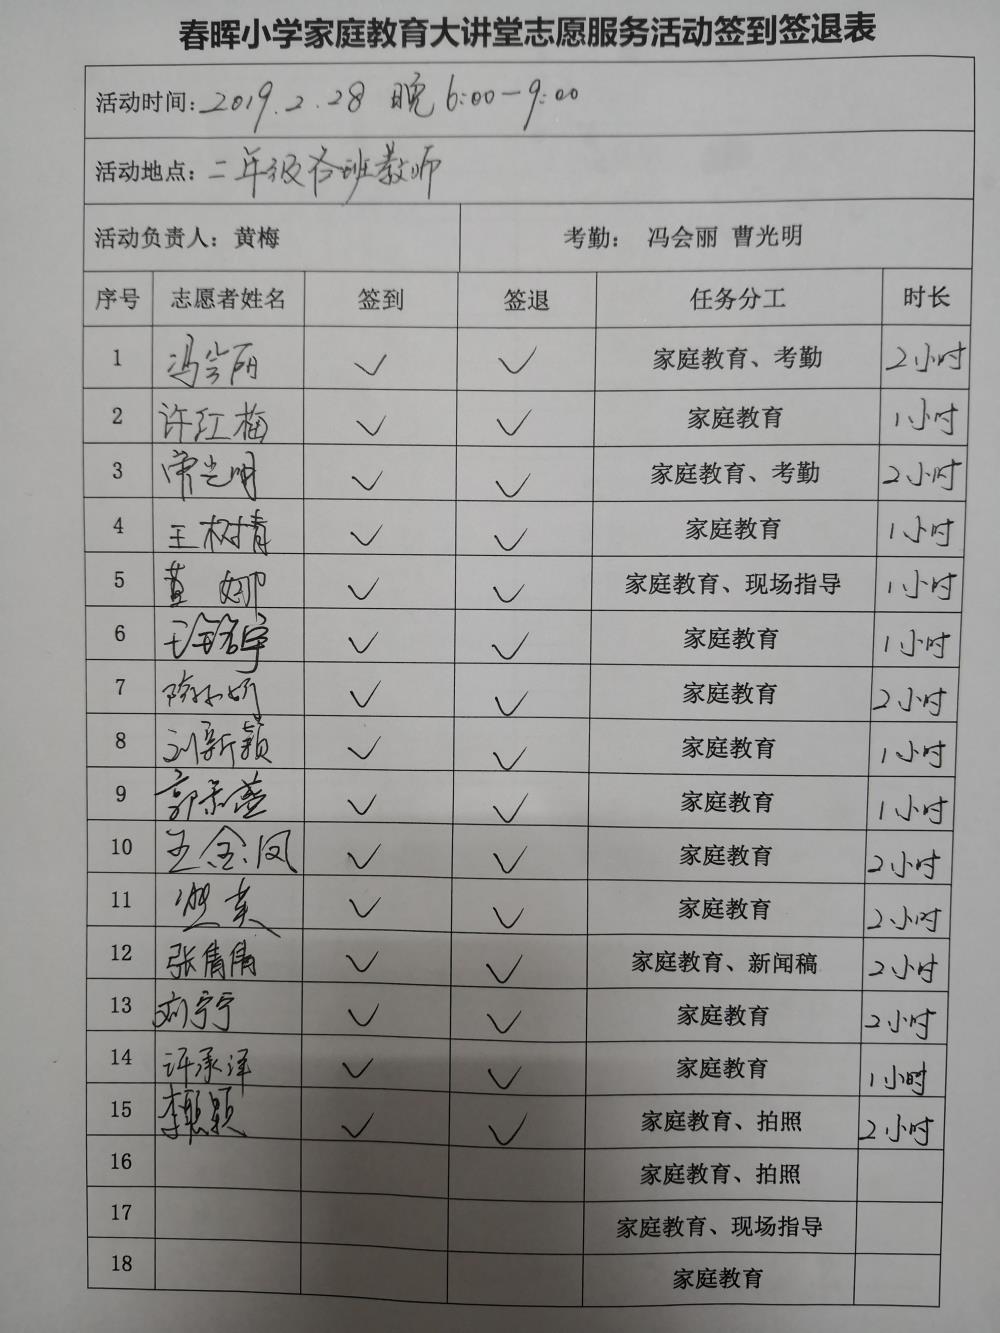 春晖小学家庭教育大讲堂志愿服务活动签到签退表
活动时间：2019.2.28 晚 6:00-9:00
活动地点：二年级各班教师
活动负责人：黄梅 考勤： 冯会丽 曹光明
序号 志愿者姓名 签到 签退 任务分工 时长
1 冯会丽 ✓ ✓ 家庭教育、考勤 2小时
2 许红梅 ✓ ✓ 家庭教育 1小时
3 曹光明 ✓ ✓ 家庭教育、考勤 2小时
4 王树青 ✓ ✓ 家庭教育 1小时
5 董娜 ✓ ✓ 家庭教育、现场指导 1小时
6 ✓ ✓ 家庭教育 1小时
7 ✓ ✓ 家庭教育 2小时
8 刘新颖 ✓ ✓ 家庭教育 1小时
9 ✓ ✓ 家庭教育 1小时
10 王金凤 ✓ ✓ 家庭教育 2小时
11 ✓ ✓ 家庭教育 2小时
12 张倩倩 ✓ ✓ 家庭教育、新闻稿 2小时
13 刘宁宁 ✓ ✓ 家庭教育 2小时
14 许承泽 ✓ ✓ 家庭教育 1小时
15 ✓ ✓ 家庭教育、拍照 2小时
16 家庭教育、拍照
17 家庭教育、现场指导
18 家庭教育